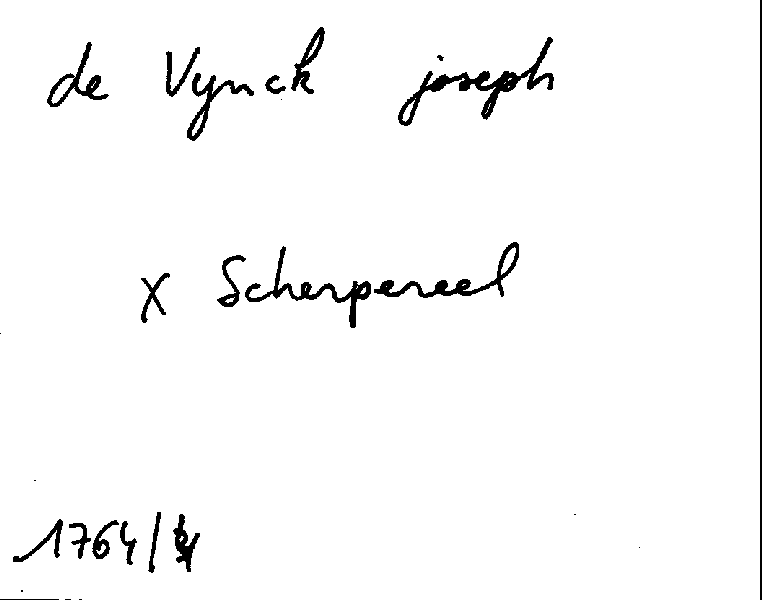 de Vynck joseph
x Scherpereel
1764/